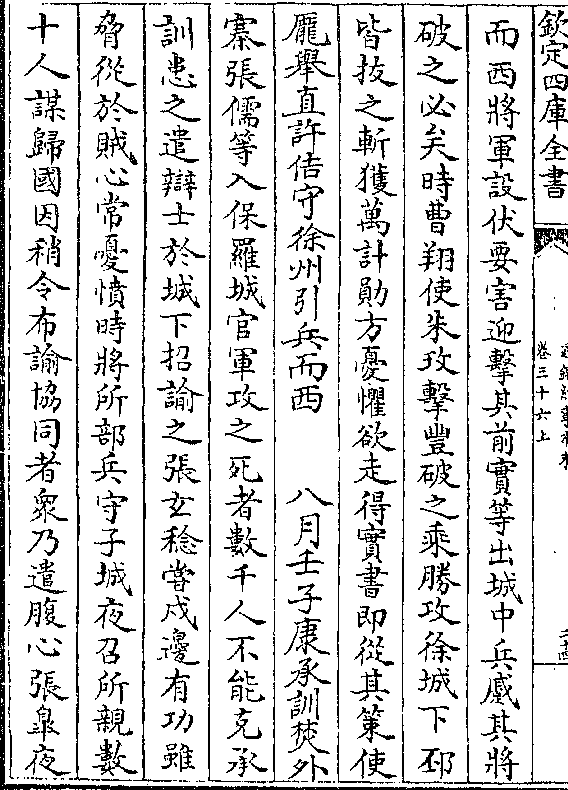 欽定四庫全書
卷三十六上
而西將軍設伏要害迎擊其前實等出城中兵蹙其將
破之必矣時曹翔使朱玫擊豐破之乘勝攻徐城下邳
皆拔之斬獲萬計勛方憂懼欲走得實書即從其策使
龎舉直許佶守徐州引兵而西 八月壬子康承訓焚外
寨張儒等入保羅城官軍攻之死者數千人不能克承
訓患之遣辯士於城下招諭之張玄稔嘗戍邊有功雖
脅從於賊心常憂憤時將所部兵守子城夜召所親數
十人謀歸國因稍令布諭協同者衆乃遣腹心張臯夜